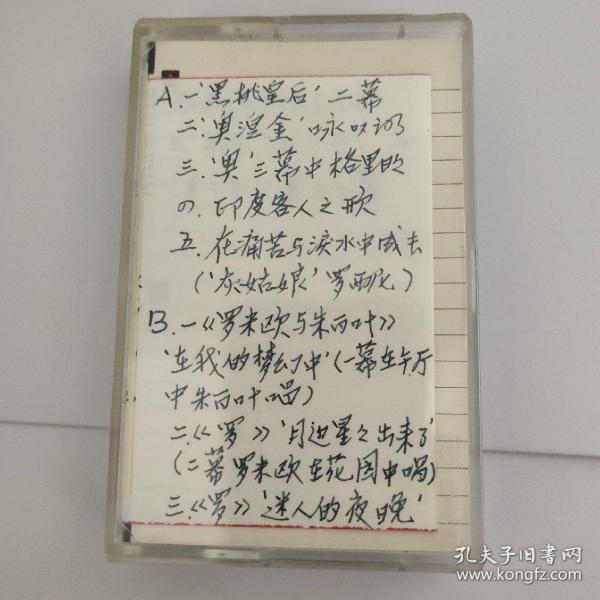 A.一.'黑桃皇后'二幕
二.'奥涅金'咏叹词
三.'奥'三幕中格里的
四.印度客人之歌
五.在痛苦与泪水中成长
('灰姑娘'罗西尼)
B.一《罗米欧与朱丽叶》
'在我的梦幻中'(一幕在午厅
中朱丽叶唱)
二.《罗》'月边星之出来了'
(二幕罗米欧在花园中唱)
三.《罗》'迷人的夜晚'
孔夫子旧书网
www.kongfz.com